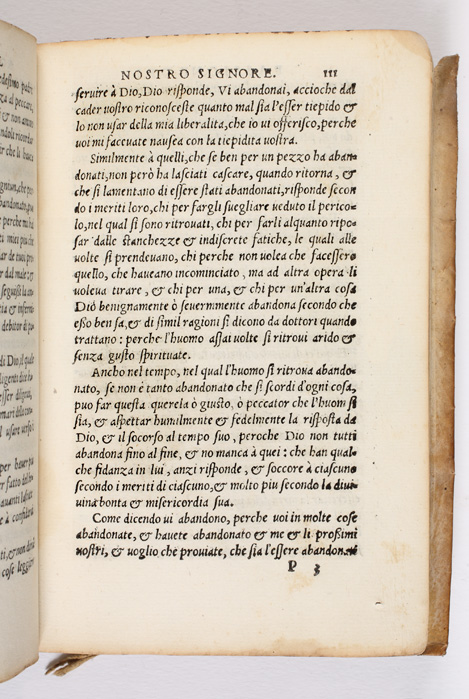 L
desimo padre
za al peccare,
NOSTRO SIGNORE. 111
seruire à Dio, Dio risponde, Vi abandonai, accioche dal
cader uostro riconosceste quanto mal sia l'esser tiepido &
lo non usar della mia liberalita, che io ui offerisco, perche
uoi mi faceuate nausea con la tiepidita uostra.
Similmente à quelli, che se ben per un pezzo ha aban
donati, non però ha lasciati cascare, quando ritorna, &
che si lamentano di essere stati abandonati, risponde secon
do i meriti loro, chi per fargli suegliare ueduto il perico-
lo, nel qual si sono ritrouati, chi per farli alquanto ripo-
sar dalle stanchezze & indiscrete fatiche, le quali alle
uolte si prendeuano, chi perche non uolea che facessero
quello, che haueano incominciato, ma ad altra opera li
uoleua tirare, & chi per una, & chi per un'altra cosa
Dio benignamente ò seueramente abandona secondo che
esso ben sa, & di simil ragioni si dicono da dottori quando
trattano: perche l'huomo assai uolte si ritroui arido &
senza gusto spirituate.
Ancho nel tempo, nel qual l'huomo si ritroua abando-
nato, se non è tanto abandonato che si scordi d'ogni cosa,
puo far questa querela ò giusto, ò peccator che l'huom si
sia, & aspettar humilmente & fedelmente la risposta da
Dio, & il socorso al tempo suo, peroche Dio non tutti
abandona fino al fine, & no manca à quei: che han qual-
che fidanza in lui, anzi risponde, & soccore à ciascuno
secondo i meriti di ciascuno, & molto piu secondo la diui
uina bonta & misericordia sua.
Come dicendo ui abandono, perche uoi in molte cose
abandonate, & hauete abandonato & me & li prossimi
uostri, & uoglio che prouiate, che sia l'essere abandonati
P 3